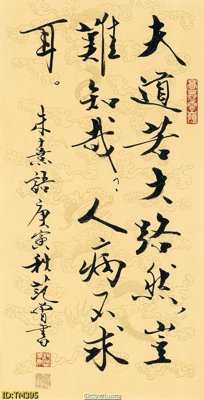 夫道若大路然豈
難知哉人病不求
耳。
朱熹語庚寅秋范曾書
ID:TM395